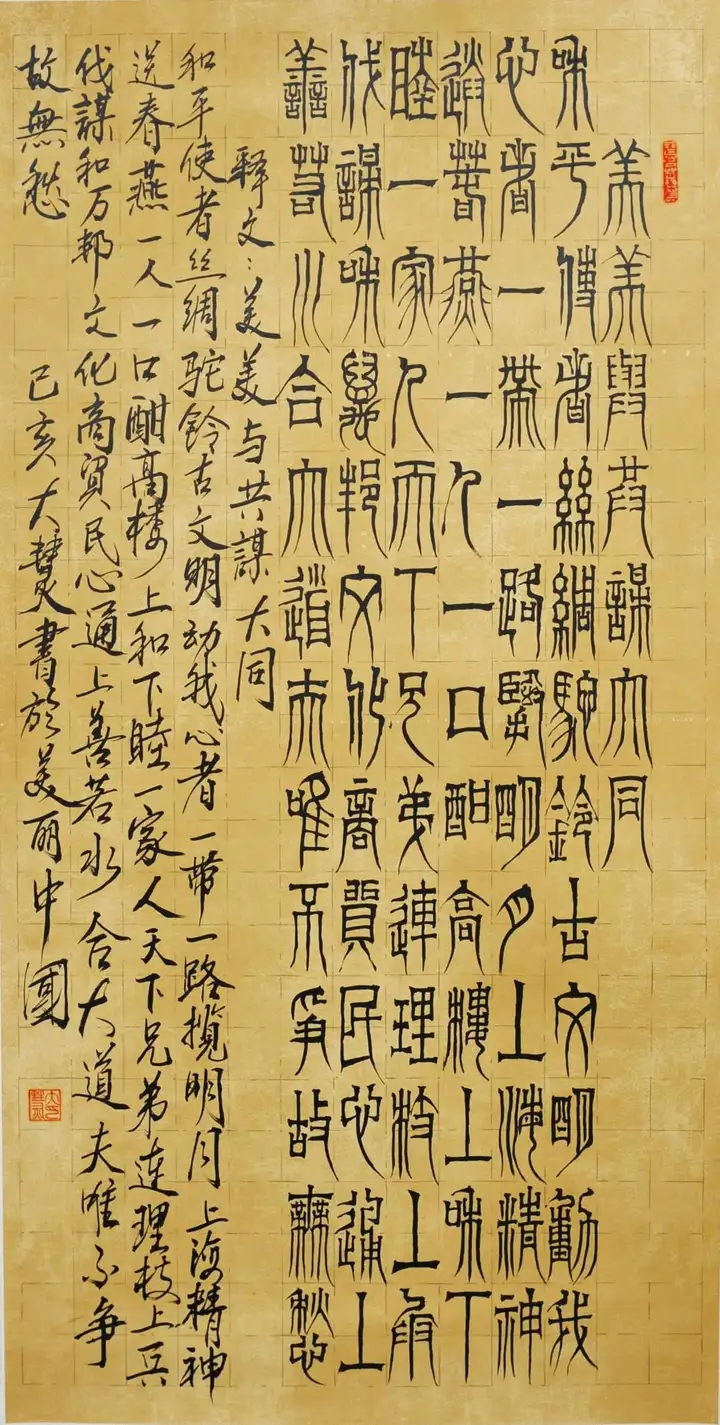 美美與共謀大同
和平使者絲綢駝鈴古文明動我
心者一帶一路擥明月上海精神
送春燕一人一口酣高樓上和下
睦一家人天下兄弟連理枝上兵
伐謀和萬邦文化商貿民心通上
善若水合大道夫唯不爭故無愁
釋文：美美与共謀大同
和平使者丝綢驼鈴古文明动我心者一带一路揽明月上海精神
送春燕一人一口酣高楼上和下睦一家人天下兄弟连理枝上兵
伐謀和万邦文化商贸民心通上善若水合大道夫唯不争
故無愁 己亥大書於美丽中國